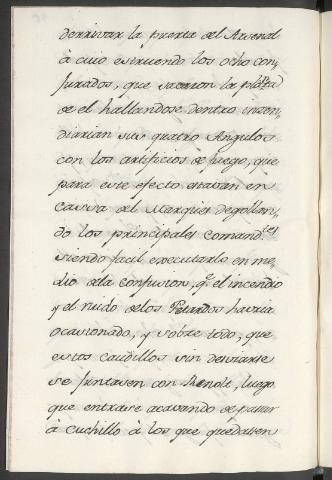 derrivar la puerta del Arsenal
à cuio estruendo los ocho con,
jurados, que sacaron la
de el hallandose dentro incen,
diarian sus quatro Angulos
con los artificios de fuego, que
para este efecto estavan en
cassa del Marques degollan,
do los principales Comand.tes
siendo facil executarlo en me,
dio dela confusion, q.e el incendio
y el ruido delos Petardos havia
ocasionado, y sobre todo, que
estos caudillos sin desviarse
se juntasen con Renolt, luego
que entrase acavando de passar
à cuchillo à los que quedassen